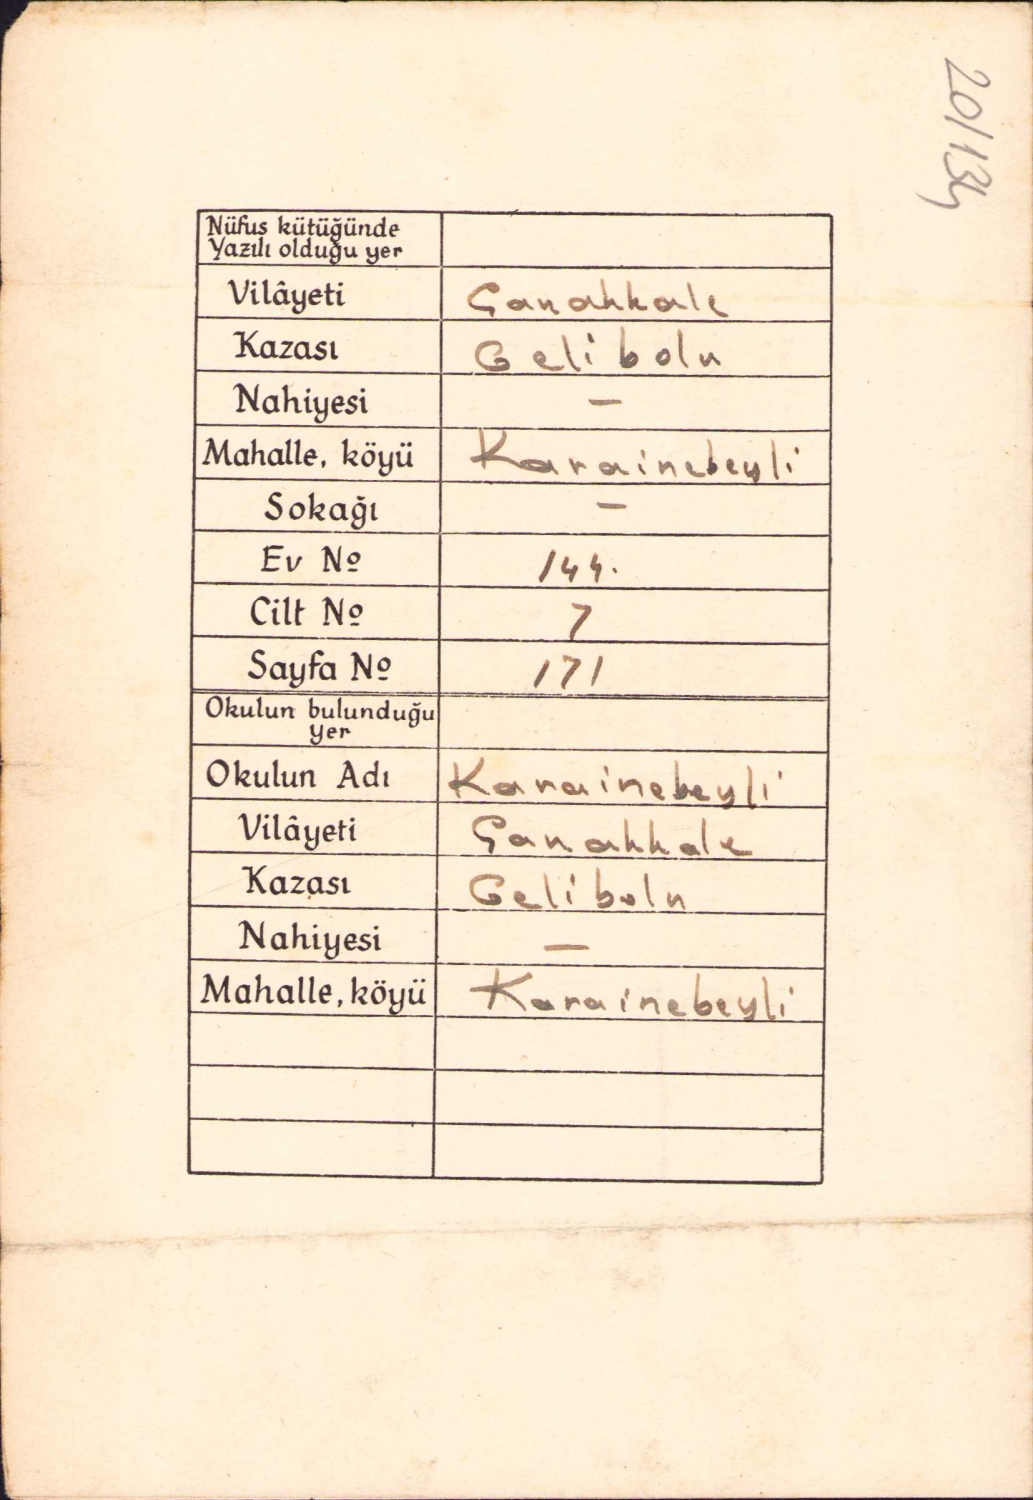 20/134
Nüfus kütüğünde
Yazılı olduğu yer
Vilâyeti Çanakkale
Kazası Gelibolu
Nahiyesi —
Mahalle, köyü Karainebeyli
Sokağı —
Ev Nº 144.
Cilt Nº 7
Sayfa Nº 171
Okulun bulunduğu
yer
Okulun Adı Karainebeyli
Vilâyeti Çanakkale
Kazası Gelibolu
Nahiyesi —
Mahalle, köyü Karainebeyli